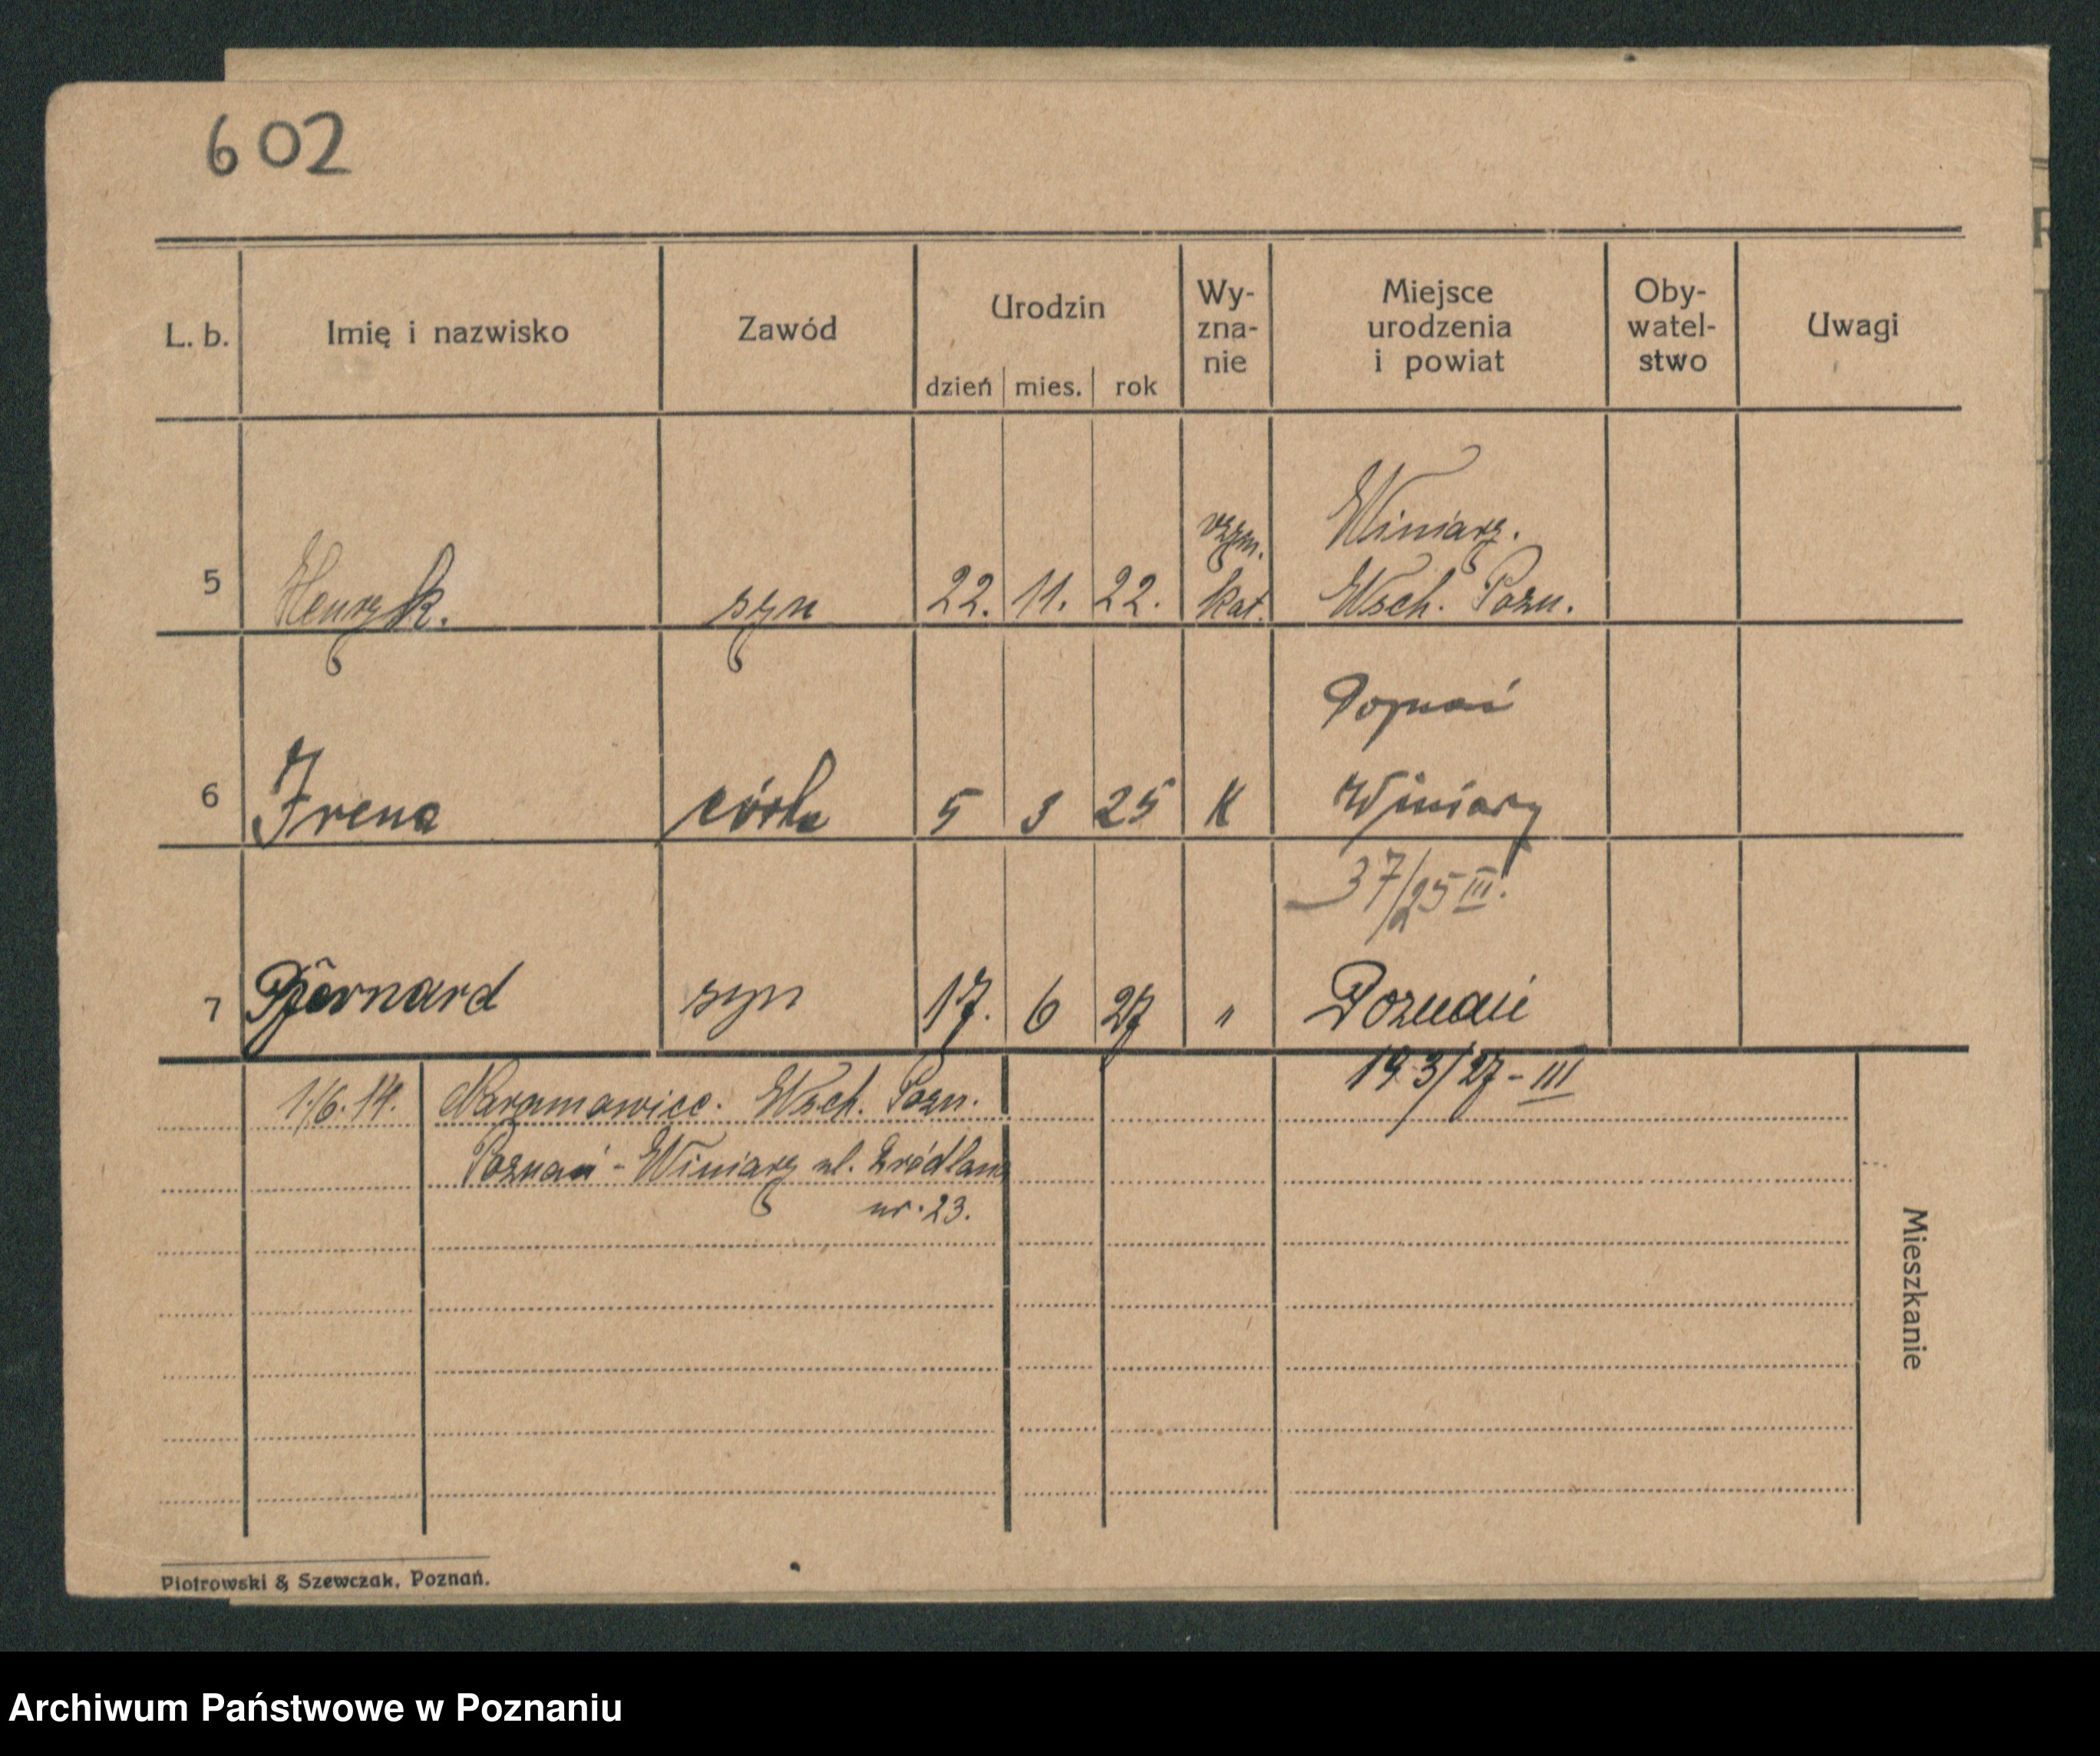 602
L. b. Imię i nazwisko Zawód Urodzin dzień mies. rok Wy-zna-nie Miejsce urodzenia i powiat Oby-watel-stwo Uwagi
rzym. Winiary.
5 Henryk. syn 22. 11. 22. kat. Wsch. Pozn.
Poznań
6 Irena córka 5 3 25 K Winiary
37/25 III.
7 Bernard syn 17. 6 27 " Poznań
193/27 - III
1./6. 14. Naramowice. Wsch. Pozn.
Poznań - Winiary ul. Źródlana
nr. 23.
Mieszkanie
Piotrowski & Szewczak, Poznań.
Archiwum Państwowe w Poznaniu